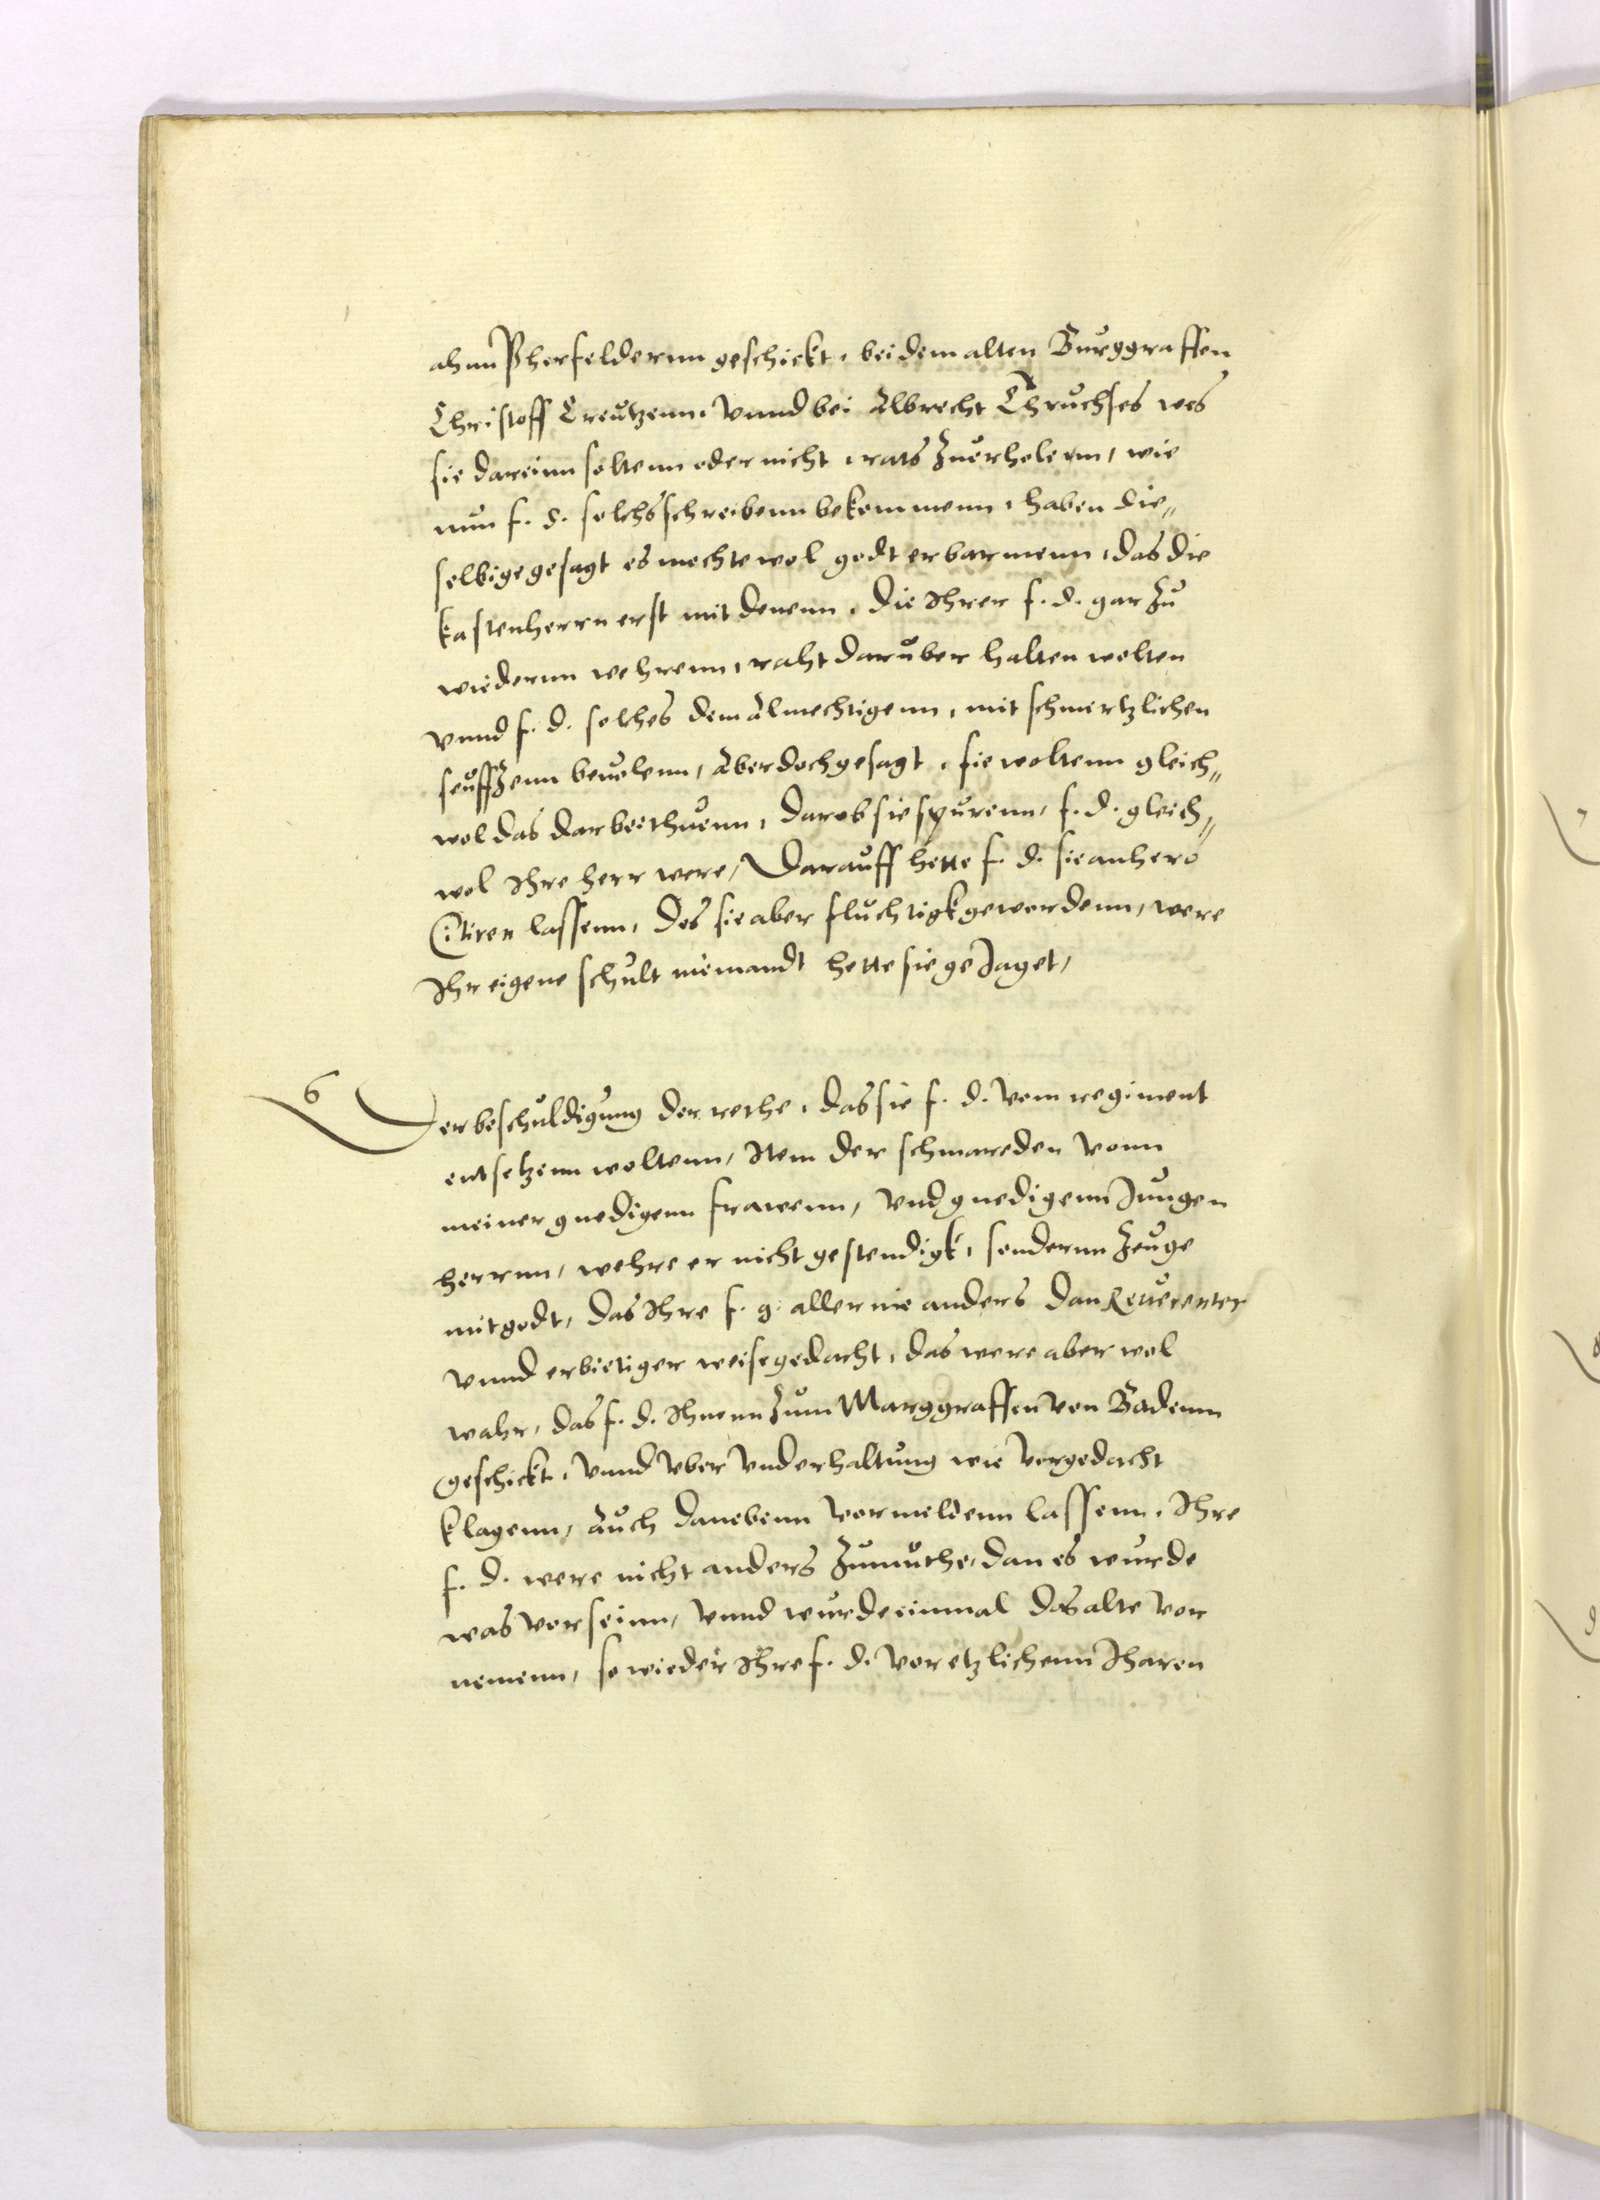 ahnn Pherfeldernn geschickt, bei dem alten Burggraffen
Christoff Creutzenn, vnnd bei Albrecht Thruchses wes
sie dareinn soltenn oder nicht, rats zuerholenn, wie
nun f. d. solchs schreibenn bekommenn, haben die„
selbige gesagt es mochte wol godt erbarmenn, das die
kastenherrn erst mit denenn, die Ihrer f. d. gar zu
wiedernn wehrenn, raht daruber halten wolten
vnnd f. d. solches dem Almechtigenn, mit schmertzlichen
seuffzenn beuolenn, Aber doch gesagt, sie woltenn gleich„
wol das dar bei thuenn, darob sie spurenn, f. d. gleich„
wol Ihre herr were, Darauff hette f. d. sie anhero
Citiren lassenn, Des sie aber fluchtigk gewordenn, were
Ihr eigene schult niemandt hette sie geJaget,
6 Der beschuldigung der rethe, das sie f. d. vom regiment
entsetzenn woltenn, Item der schmareden vonn
meiner gnedigenn frawenn, vnd gnedigenn Jungen
herrnn, wehre er nicht gestendigk, sondernn zeuge
mit godt, das Ihre f. g. aller nie anders dan Reuerenter
vnnd erbietiger weise gedacht, das were aber wol
wahr, das f. d. Ihnenn zum Marggraffen von Badenn
geschickt, vnnd vber vnderhaltung wie vorgedacht
klagenn, Auch danebenn vormeldenn lassenn, Ihre
f. d. were nicht anders zumuthe, dan es wurde
was vor seinn, vnnd wurde einmal das alte vor
nemenn, so wieder Ihre f. d. vor etzlichenn Iharen